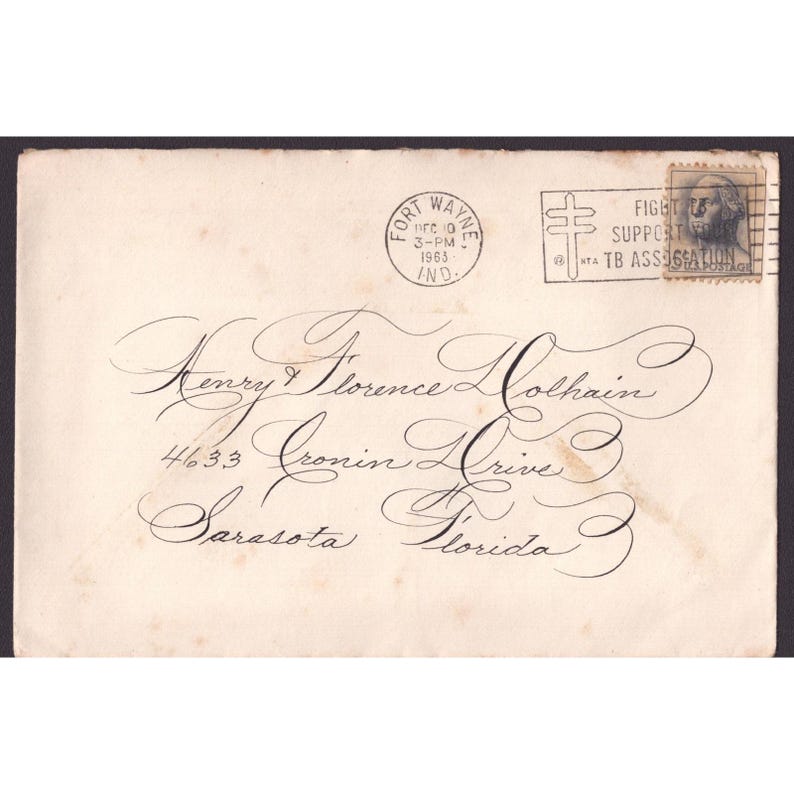 FORT WAYNE,
DEC 10
3-PM
1963
IND.
FIGHT TB
SUPPORT YOUR
® NTA TB ASSOCIATION
U.S. POSTAGE
Henry & Florence Dolhain
4633 Cronin Drive
Sarasota Florida